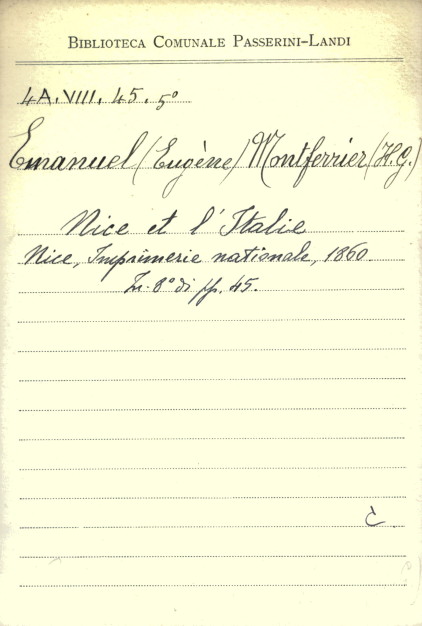 BIBLIOTECA COMUNALE PASSERINI-LANDI
4A. VIII. 45. 5º
Emanuel (Eugène) Montferrier (H.G.)
Nice et l'Italie
Nice, Imprimerie nationale, 1860
In 8º di pp. 45.
C.